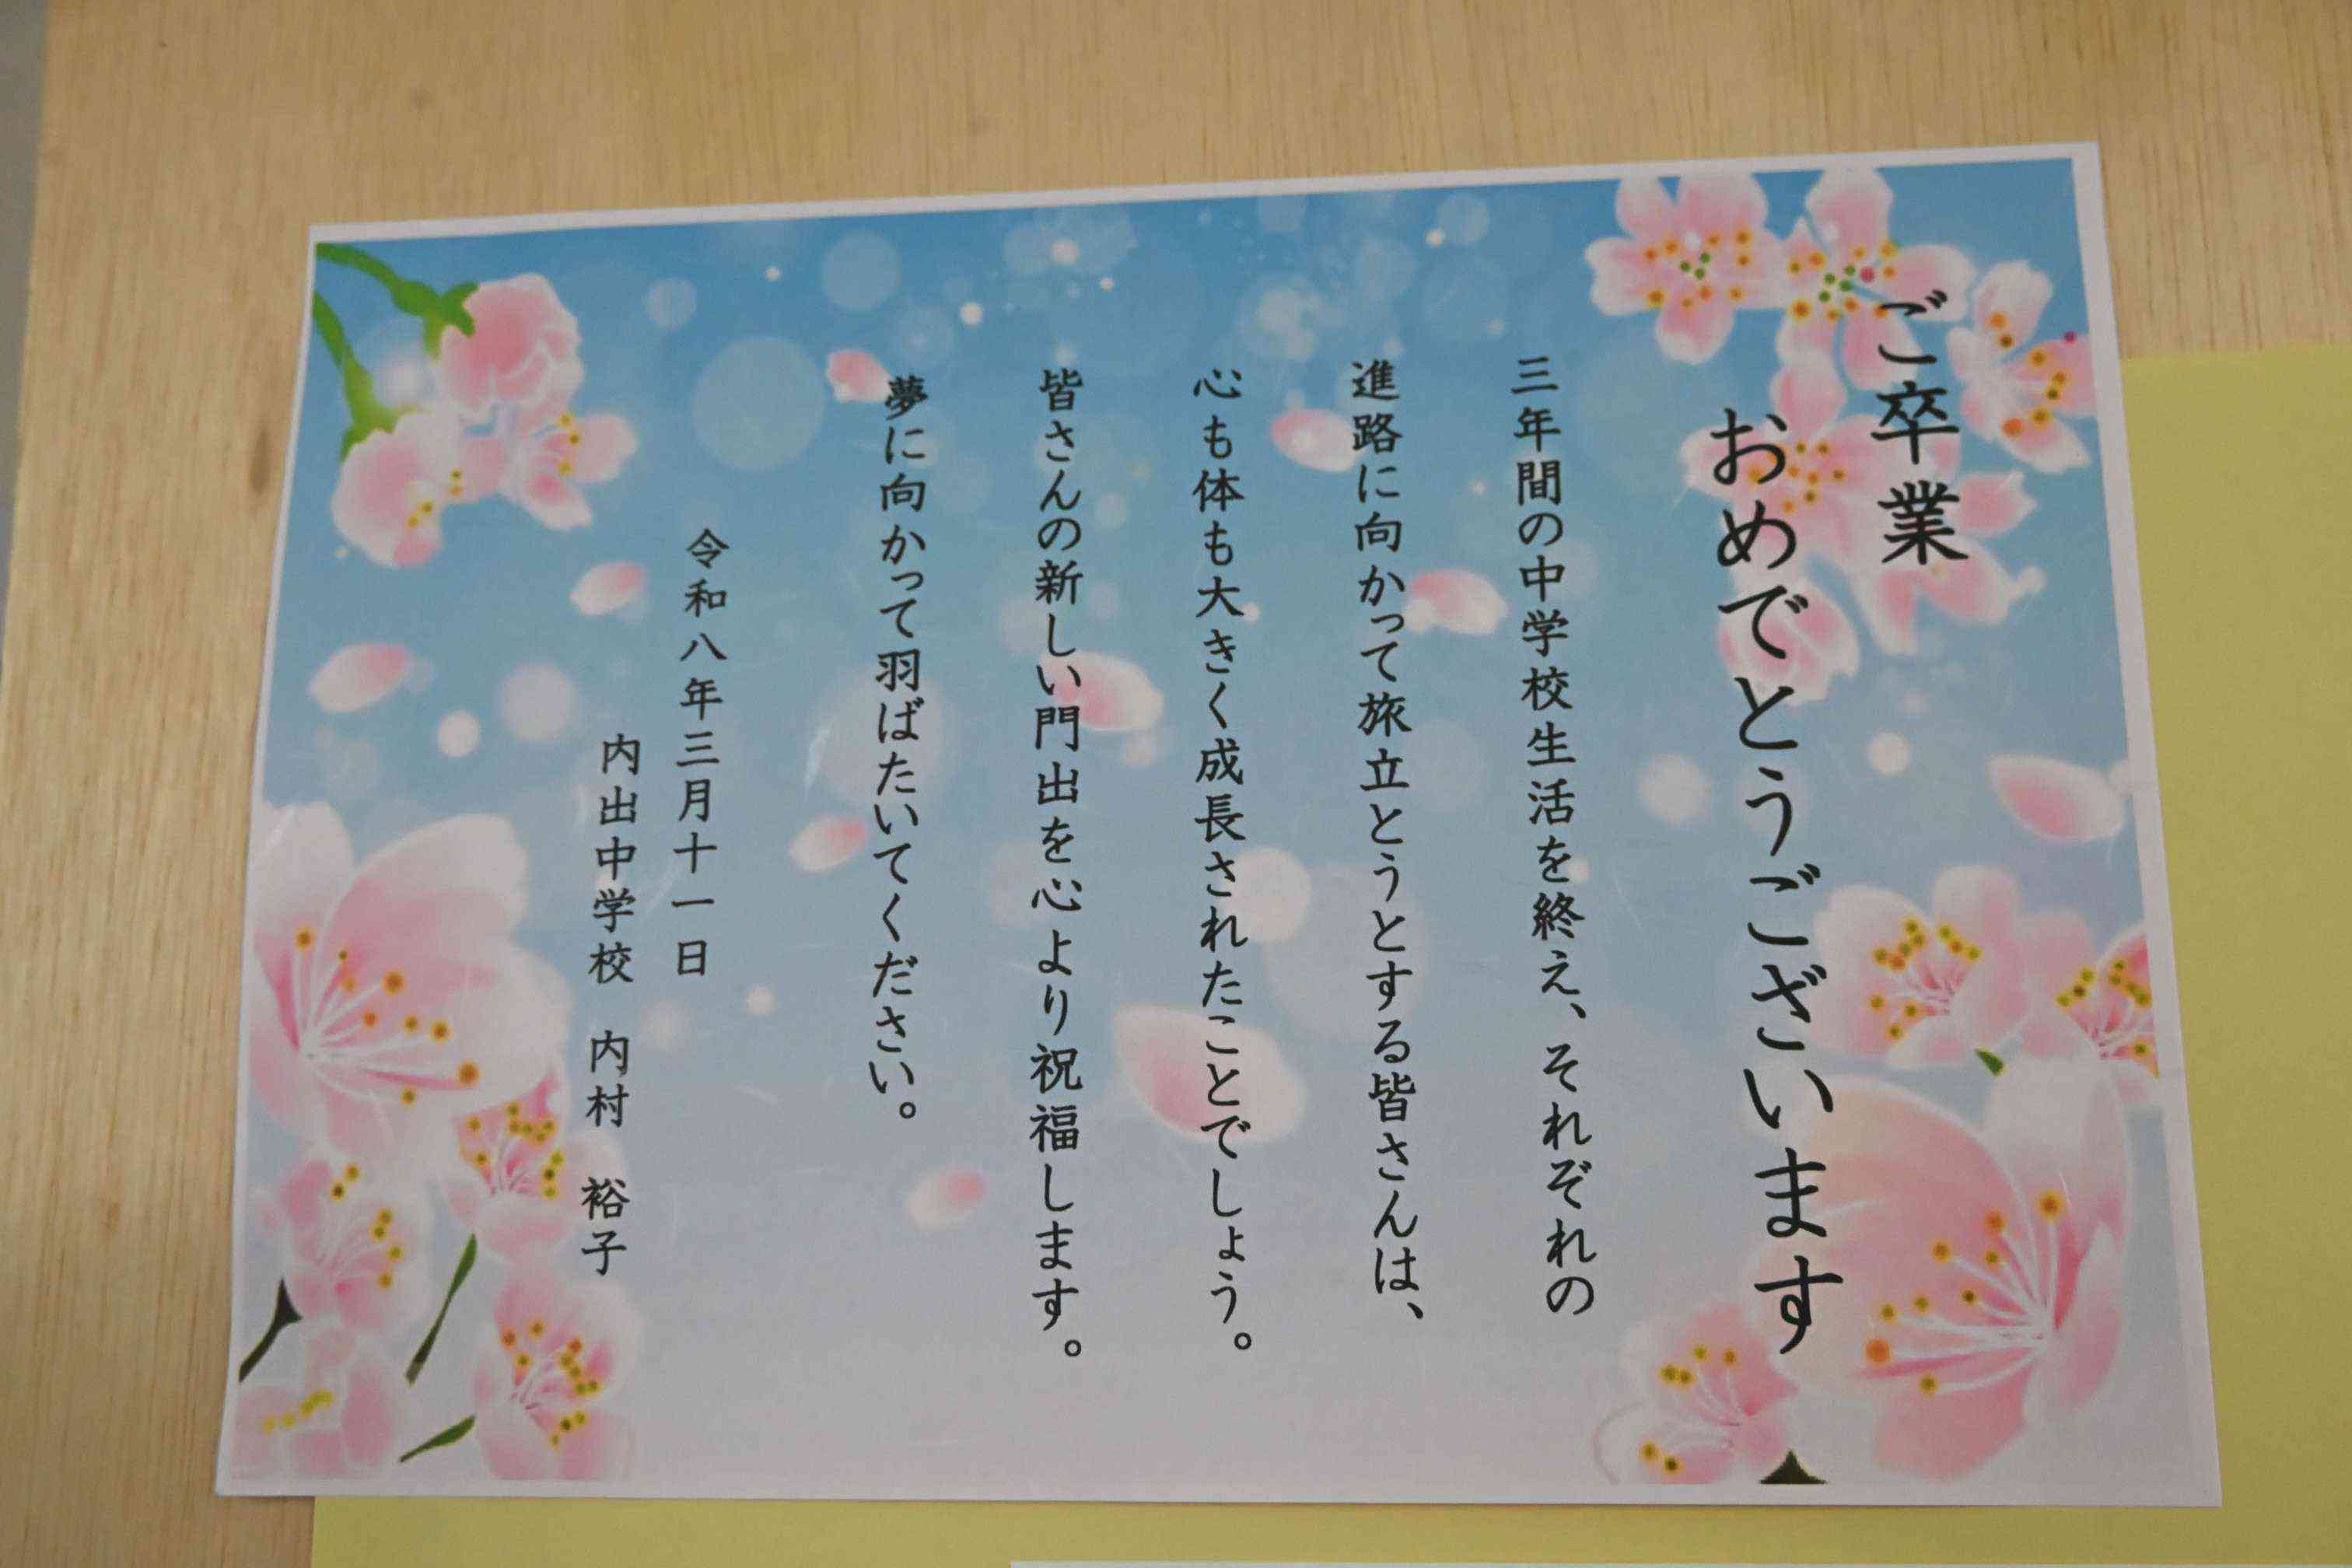 ご卒業
おめでとうございます
三年間の中学校生活を終え、それぞれの
進路に向かって旅立とうとする皆さんは、
心も体も大きく成長されたことでしょう。
皆さんの新しい門出を心より祝福します。
夢に向かって羽ばたいてください。
令和八年三月十一日
内出中学校　内村　裕子